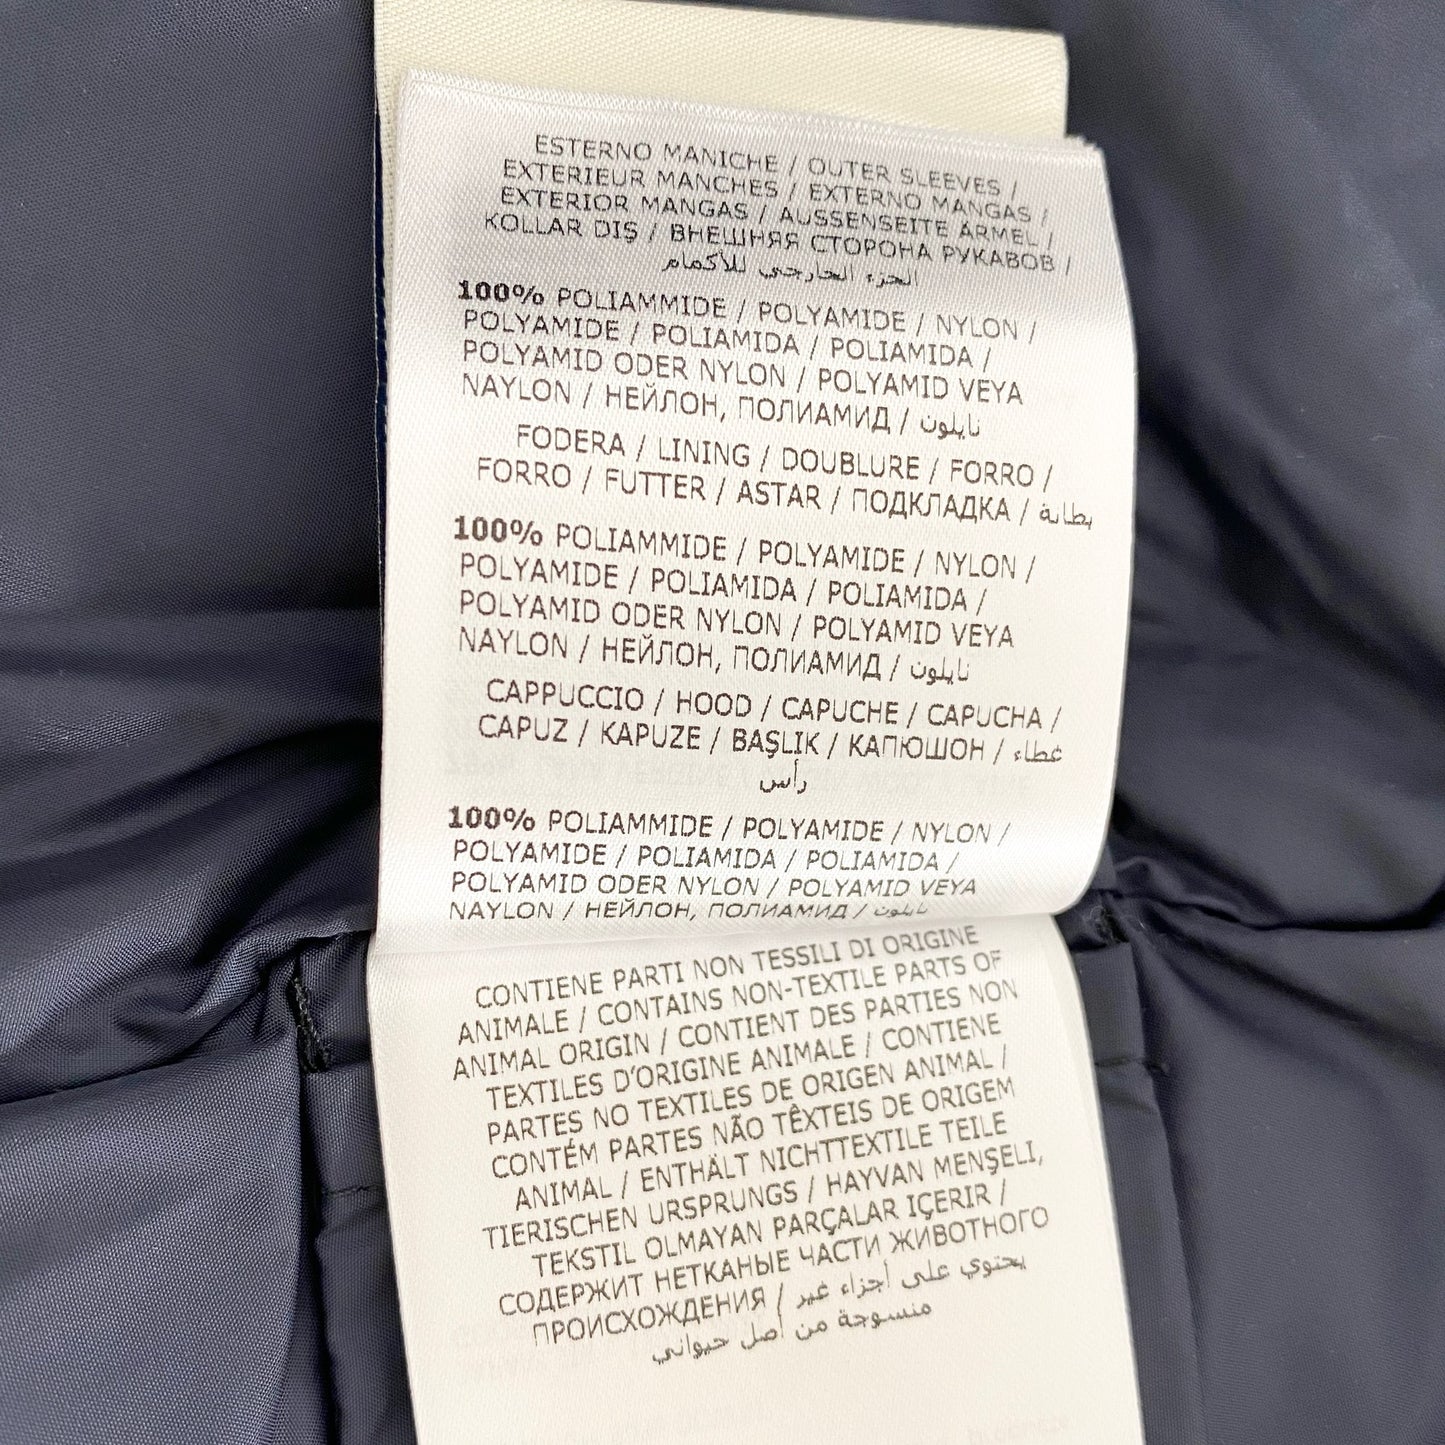 ESTERNO MANICHE / OUTER SLEEVES /
EXTERIEUR MANCHES / EXTERNO MANGAS /
EXTERIOR MANGAS / AUSSENSEITE ÄRMEL /
KOLLAR DIŞ / ВНЕШНЯЯ СТОРОНА РУКАВОВ /
الجزء الخارجي للأكمام
100% POLIAMMIDE / POLYAMIDE / NYLON /
POLYAMIDE / POLIAMIDA / POLIAMIDA /
POLYAMID ODER NYLON / POLYAMID VEYA
NAYLON / НЕЙЛОН, ПОЛИАМИД / نايلون
FODERA / LINING / DOUBLURE / FORRO /
FORRO / FUTTER / ASTAR / ПОДКЛАДКА / بطانة
100% POLIAMMIDE / POLYAMIDE / NYLON /
POLYAMIDE / POLIAMIDA / POLIAMIDA /
POLYAMID ODER NYLON / POLYAMID VEYA
NAYLON / НЕЙЛОН, ПОЛИАМИД / نايلون
CAPPUCCIO / HOOD / CAPUCHE / CAPUCHA /
CAPUZ / KAPUZE / BAŞLIK / КАПЮШОН / غطاء
رأس
100% POLIAMMIDE / POLYAMIDE / NYLON /
POLYAMIDE / POLIAMIDA / POLIAMIDA /
POLYAMID ODER NYLON / POLYAMID VEYA
NAYLON / НЕЙЛОН, ПОЛИАМИД / نايلون
CONTIENE PARTI NON TESSILI DI ORIGINE
ANIMALE / CONTAINS NON-TEXTILE PARTS OF
ANIMAL ORIGIN / CONTIENT DES PARTIES NON
TEXTILES D'ORIGINE ANIMALE / CONTIENE
PARTES NO TEXTILES DE ORIGEN ANIMAL /
CONTÉM PARTES NÃO TÊXTEIS DE ORIGEM
ANIMAL / ENTHÄLT NICHTTEXTILE TEILE
TIERISCHEN URSPRUNGS / HAYVAN MENŞELİ,
TEKSTIL OLMAYAN PARÇALAR IÇERIR /
СОДЕРЖИТ НЕТКАНЫЕ ЧАСТИ ЖИВОТНОГО
ПРОИСХОЖДЕНИЯ / يحتوي على أجزاء غير
منسوجة من أصل حيواني